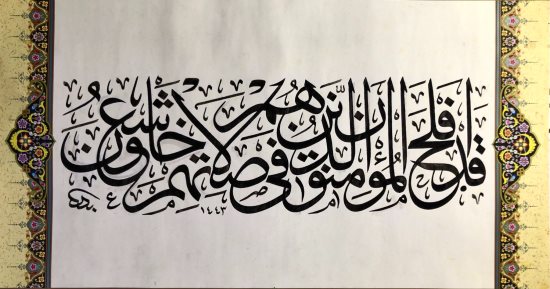 قد أفلح المؤمنون الذين هم في صلاتهم خاشعون
١٤٤٣